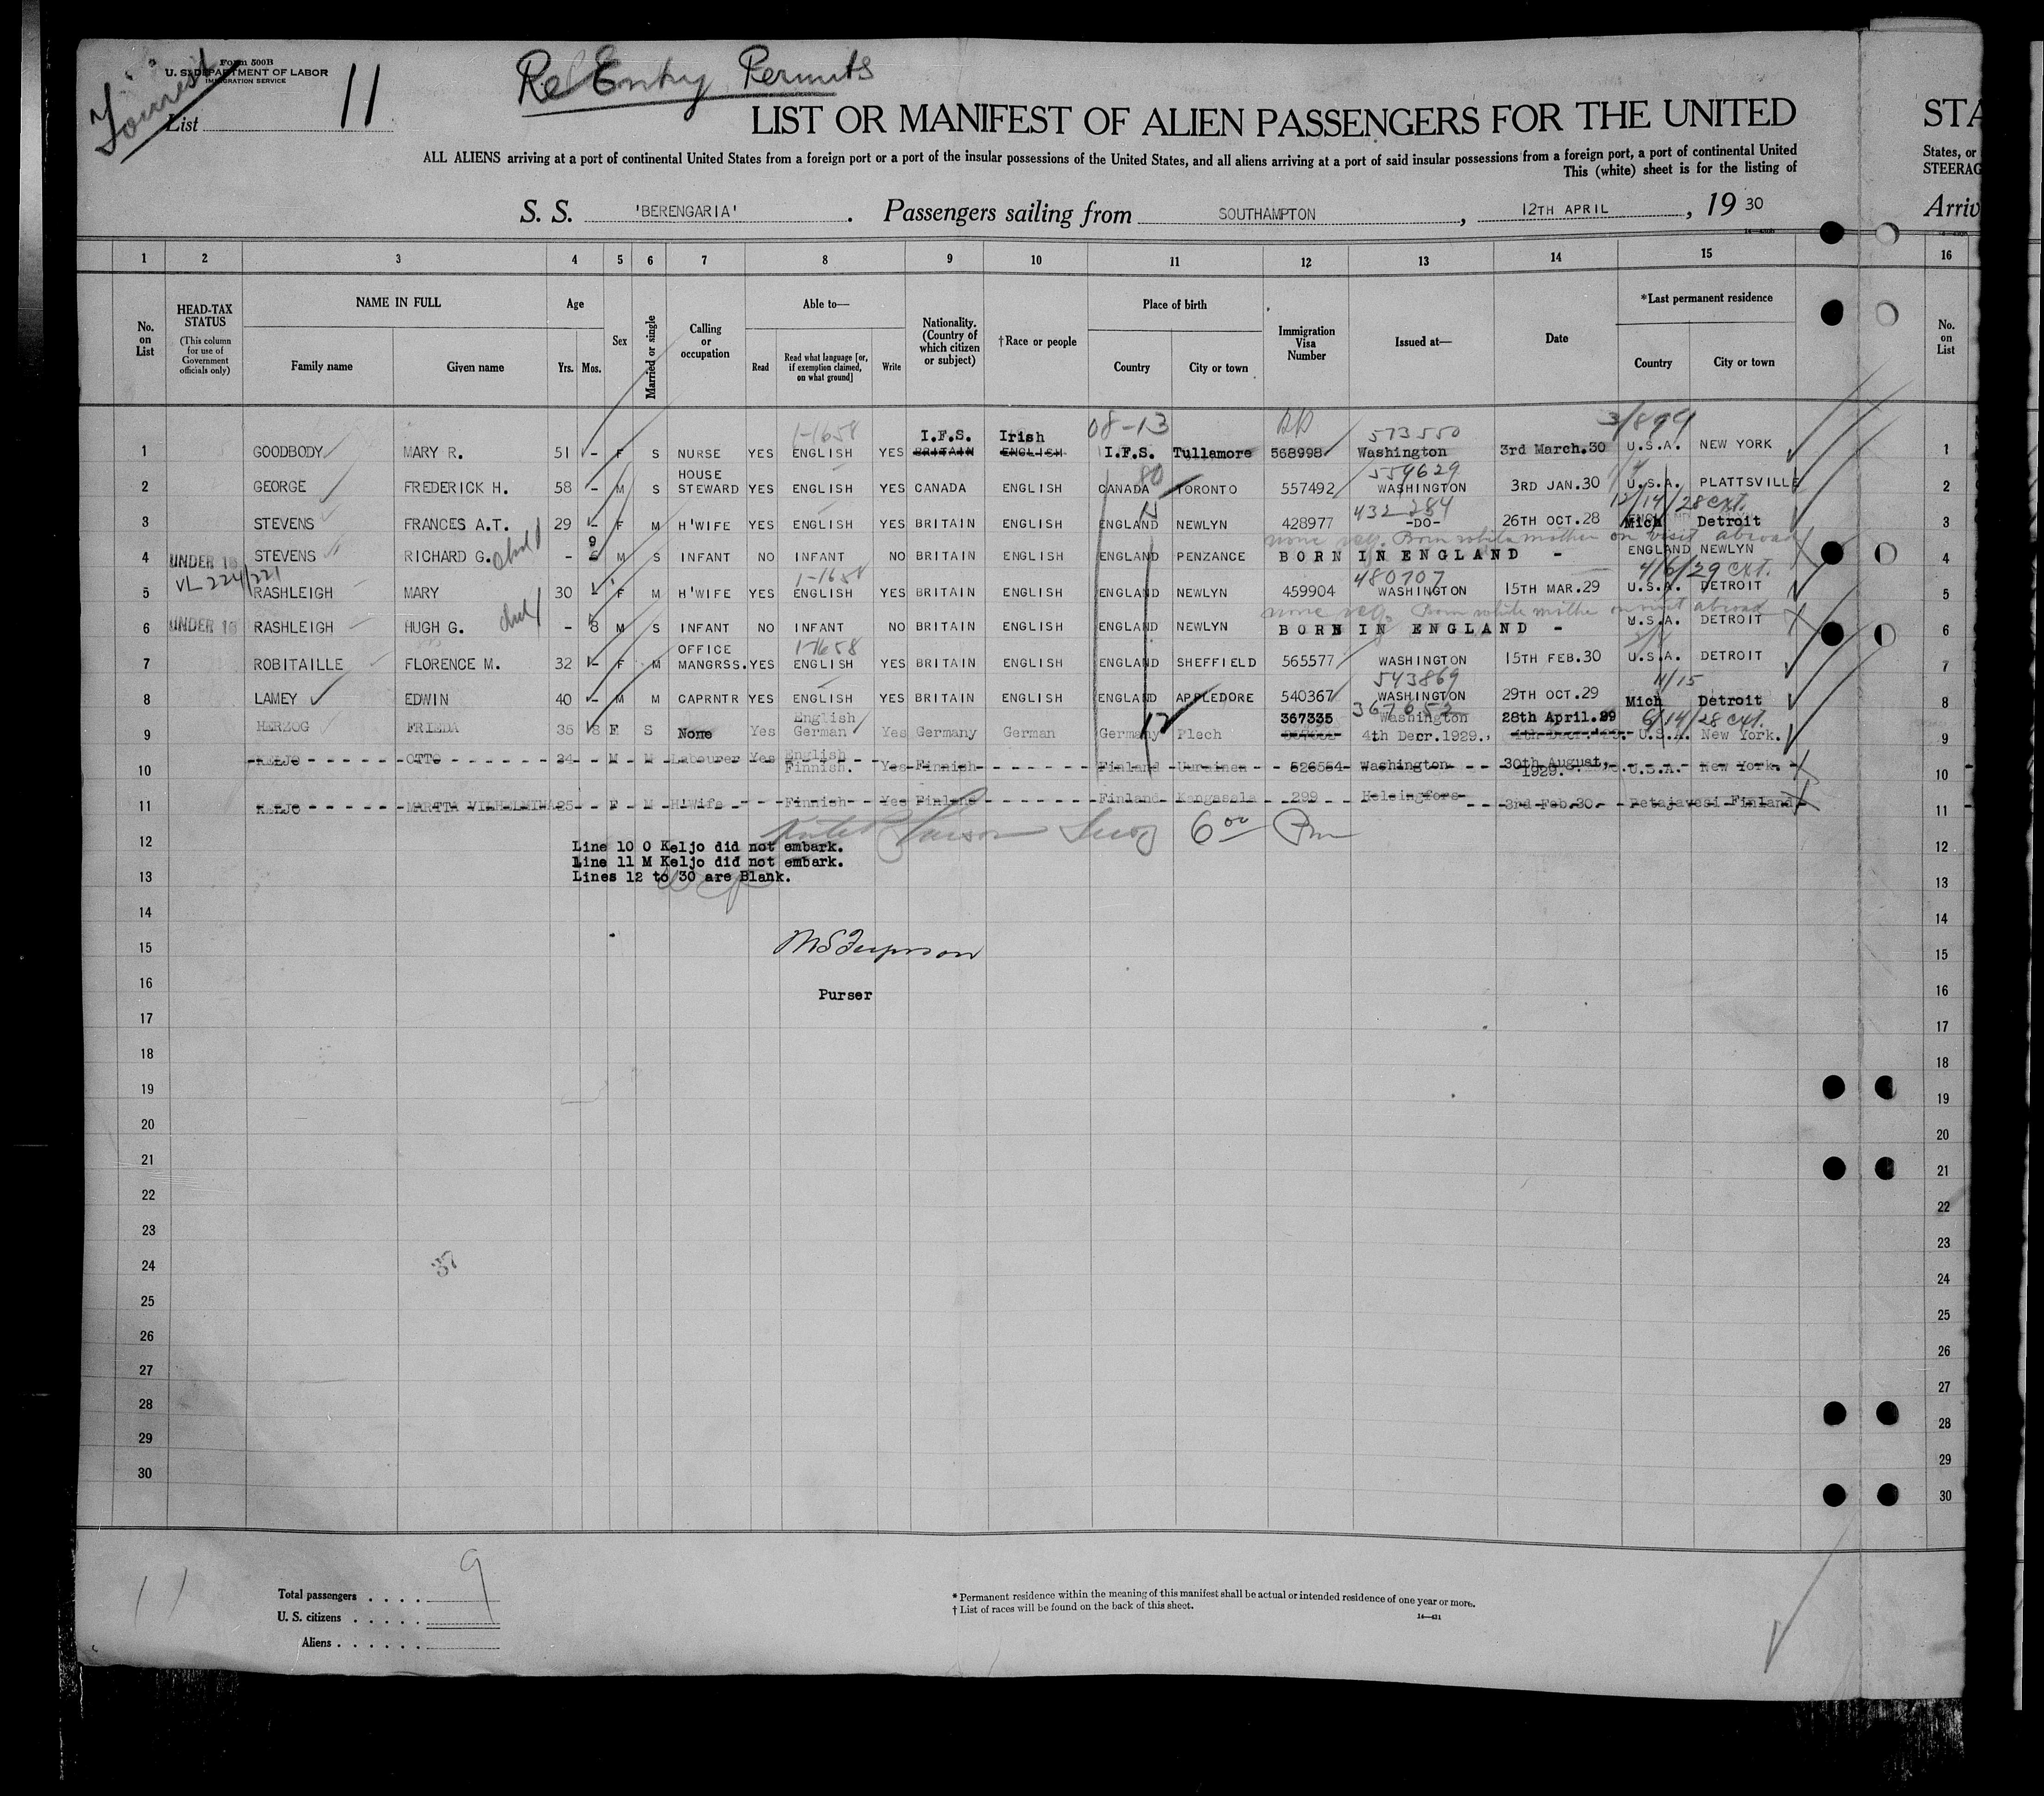 Form 500B
U. S. DEPARTMENT OF LABOR
IMMIGRATION SERVICE
Tourist
List 11
Re Entry Permits
LIST OR MANIFEST OF ALIEN PASSENGERS FOR THE UNITED
STA
ALL ALIENS arriving at a port of continental United States from a foreign port or a port of the insular possessions of the United States, and all aliens arriving at a port of said insular possessions from a foreign port, a port of continental United
States, or
This (white) sheet is for the listing of
STEERAG
S. S. 'BERENGARIA'. Passengers sailing from SOUTHAMPTON, 12TH APRIL, 19 30
Arriv
1 2 3 4 5 6 7 8 9 10 11 12 13 14 15 16
No. on List
HEAD-TAX STATUS
(This column for use of Government officials only)
NAME IN FULL
Family name
Given name
Age
Yrs.
Mos.
Sex
Married or single
Calling or occupation
Able to—
Read
Read what language [or, if exemption claimed, on what ground]
Write
Nationality. (Country of which citizen or subject)
†Race or people
Place of birth
Country
City or town
Immigration Visa Number
Issued at—
Date
*Last permanent residence
Country
City or town
No. on List
1-1658 I.F.S. Irish 08-13 573550 3/899
1 GOODBODY MARY R. 51 - F S NURSE YES ENGLISH YES BRITAIN ENGLISH I.F.S. Tullamore 568998 Washington 3rd March.30 U.S.A. NEW YORK 1
80 554629
2 GEORGE FREDERICK H. 58 - M S HOUSE STEWARD YES ENGLISH YES CANADA ENGLISH CANADA TORONTO 557492 WASHINGTON 3RD JAN.30 U.S.A. PLATTSVILLE 2
432284 12/14/28 ext.
3 STEVENS FRANCES A.T. 29 - F M H'WIFE YES ENGLISH YES BRITAIN ENGLISH ENGLAND NEWLYN 428977 -DO- 26TH OCT.28 Mich Detroit 3
Born while mother on visit abroad
4 UNDER 16 STEVENS RICHARD G. child - 9 M S INFANT NO INFANT NO BRITAIN ENGLISH ENGLAND PENZANCE BORN IN ENGLAND - ENGLAND NEWLYN 4
VL 224/221 1-1658 480707 4/6/29 ext.
5 RASHLEIGH MARY 30 F M H'WIFE YES ENGLISH YES BRITAIN ENGLISH ENGLAND NEWLYN 459904 WASHINGTON 15TH MAR.29 U.S.A. DETROIT 5
Born while mother on visit abroad
6 UNDER 16 RASHLEIGH HUGH G. child - 8 M S INFANT NO INFANT NO BRITAIN ENGLISH ENGLAND NEWLYN BORN IN ENGLAND - U.S.A. DETROIT 6
1-1658
7 ROBITAILLE FLORENCE M. 32 - F M OFFICE MANGRSS. YES ENGLISH YES BRITAIN ENGLISH ENGLAND SHEFFIELD 565577 WASHINGTON 15TH FEB.30 U.S.A. DETROIT 7
543869 11/15
8 LAMEY EDWIN 40 - M M CAPRNTR YES ENGLISH YES BRITAIN ENGLISH ENGLAND APPLEDORE 540367 WASHINGTON 29TH OCT.29 Mich Detroit 8
English 367335 367652 Washington 28th April.29 6/14/28 ext.
9 HERZOG FRIEDA 35 8 F S None Yes German Yes Germany German Germany Plech 4th Decr.1929., 4th Decr.'29. U.S.A. New York. 9
10 KELJO OTTO 24 M M Labourer Yes English Finnish. Yes Finnish Finland 526554 Washington 30th August, 1929. U.S.A. New York. 10
11 KELJO MARTTA VILHELMIINA 25 F M H'Wife Finnish Yes Finland Finland Kangasala 299 Helsingfors 3rd Feb.30. Petajavesi Finland 11
6 00 Pm
12 Line 10 O Keljo did not embark. 12
Line 11 M Keljo did not embark.
13 Lines 12 to 30 are Blank. 13
14 14
15 15
16 Purser 16
17 17
18 18
19 19
20 20
21 21
22 22
23 23
24 37 24
25 25
26 26
27 27
28 28
29 29
30 30
11
Total passengers . . . . 9
U. S. citizens . . . . .
Aliens . . . . . .
* Permanent residence within the meaning of this manifest shall be actual or intended residence of one year or more.
† List of races will be found on the back of this sheet.
14—431